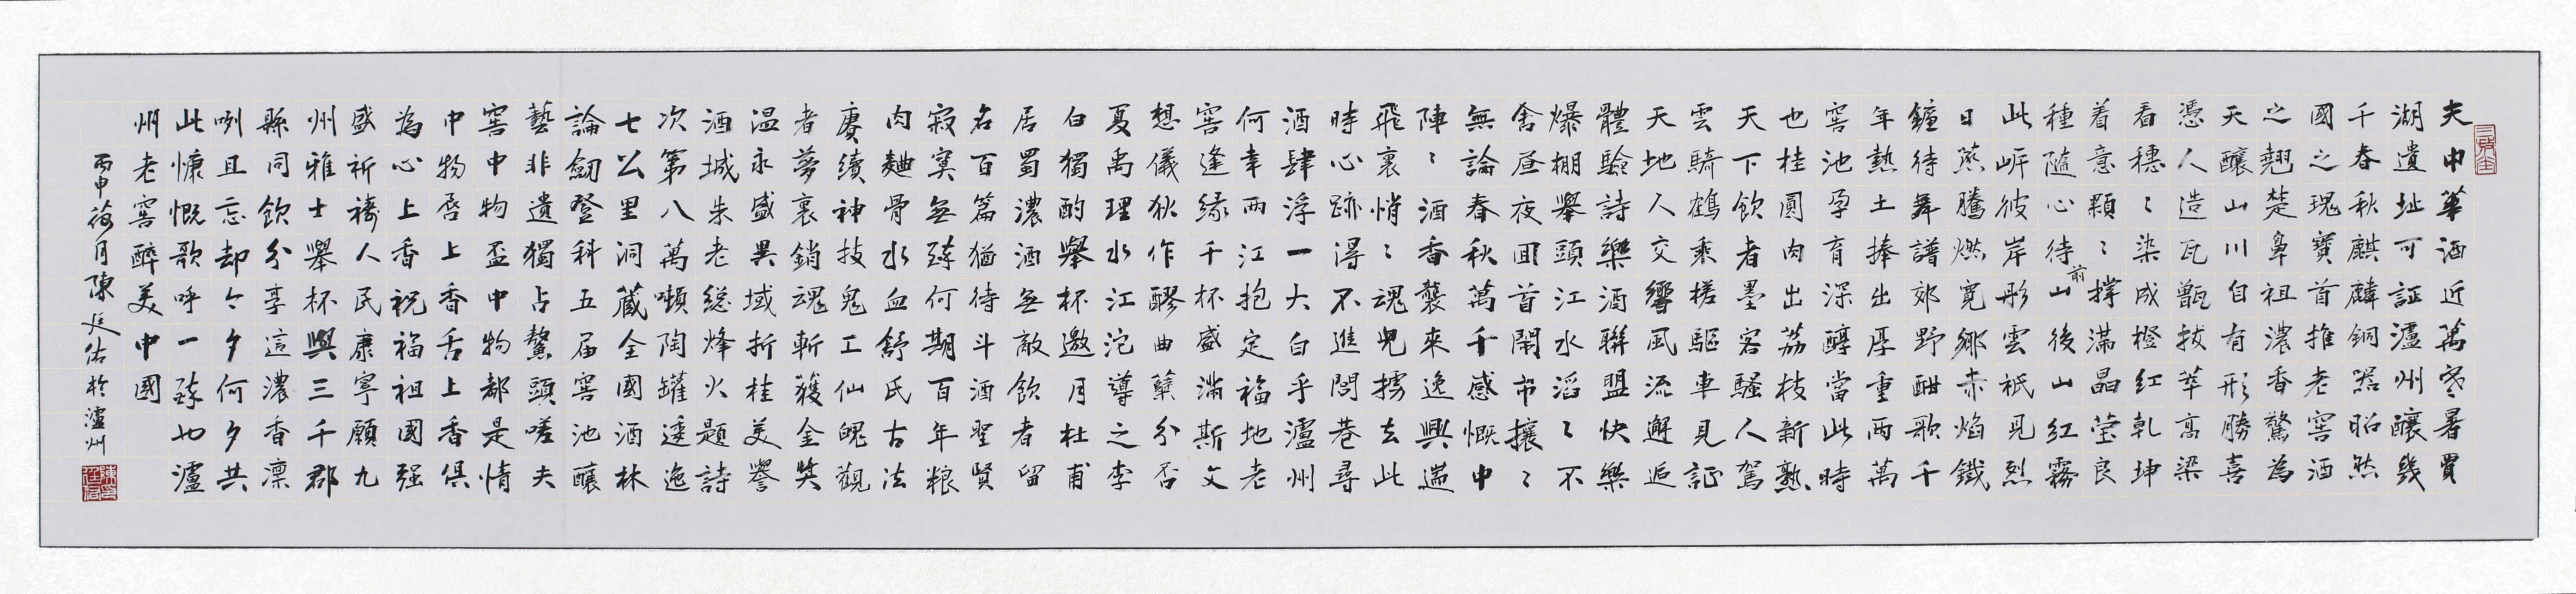 夫中華酒近萬冬暑買
湖遺址可証瀘州釀幾
千春秋麒麟銅器昭然
國之瑰寶首推老窖酒
之翹楚鼻祖濃香驚為
天釀山川自有形勝喜
憑人造瓦甑拔萃高粱
看穗〻染成橙紅乾坤
着意顆〻撑滿晶瑩良
種隨心待山後山紅霧
前
此岍彼岸彤雲祇見烈
日蒸騰燃寬鄉赤焰鐵
鐘待舞譜郊野酣歌千
年熱土捧出厚重兩萬
窖池孕育深醇當此時
也桂圓肉出荔枝新熟
天下飲者墨客騷人駕
雲騎鶴乘槎驅車見証
天地人交響風流邂逅
體驗詩樂酒聯盟快樂
爆棚舉頭江水滔〻不
舍昼夜回首鬧市攘〻
無論春秋萬千感慨中
陣〻酒香襲來逸興遄
飛裏悄〻魂兒擄去此
時心跡得不進問巷尋
酒肆浮一大白乎瀘州
何幸兩江抱定福地老
窖逢緣千杯盛滿斯文
想儀狄作醪曲糵分否
夏禹理水江沱導之李
白獨酌舉杯邀月杜甫
居蜀濃酒無敵飲者留
名百篇猶待斗酒聖賢
寂寞無疑何期百年粮
肉麯骨水血舒氏古法
賡續神技鬼工仙魄觀
者夢裏銷魂斬獲金獎
温永盛異域折桂美譽
酒城朱老總烽火題詩
次第八萬噸陶罐逶迤
七公里洞藏全國酒林
論劍登科五届窖池釀
藝非遺獨占鰲頭嗟夫
窖中物盃中物都是情
中物唇上香舌上香俱
為心上香祝福祖國强
盛祈禱人民康寧願九
州雅士舉杯與三千郡
縣同飲分享這濃香凛
冽且忘却今夕何夕共
此慷慨歌呼一醉也瀘
州老窖醉美中國
丙申荷月陳廷佑於瀘州